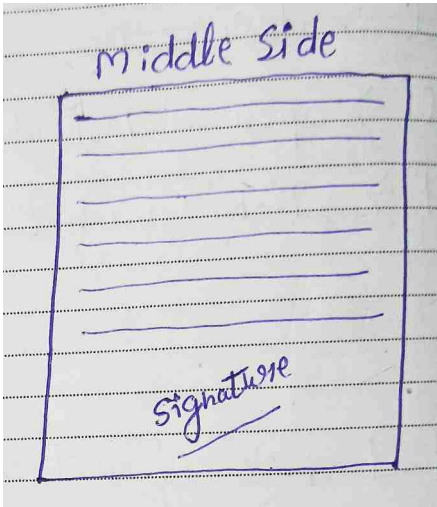 Middle Side
Signature